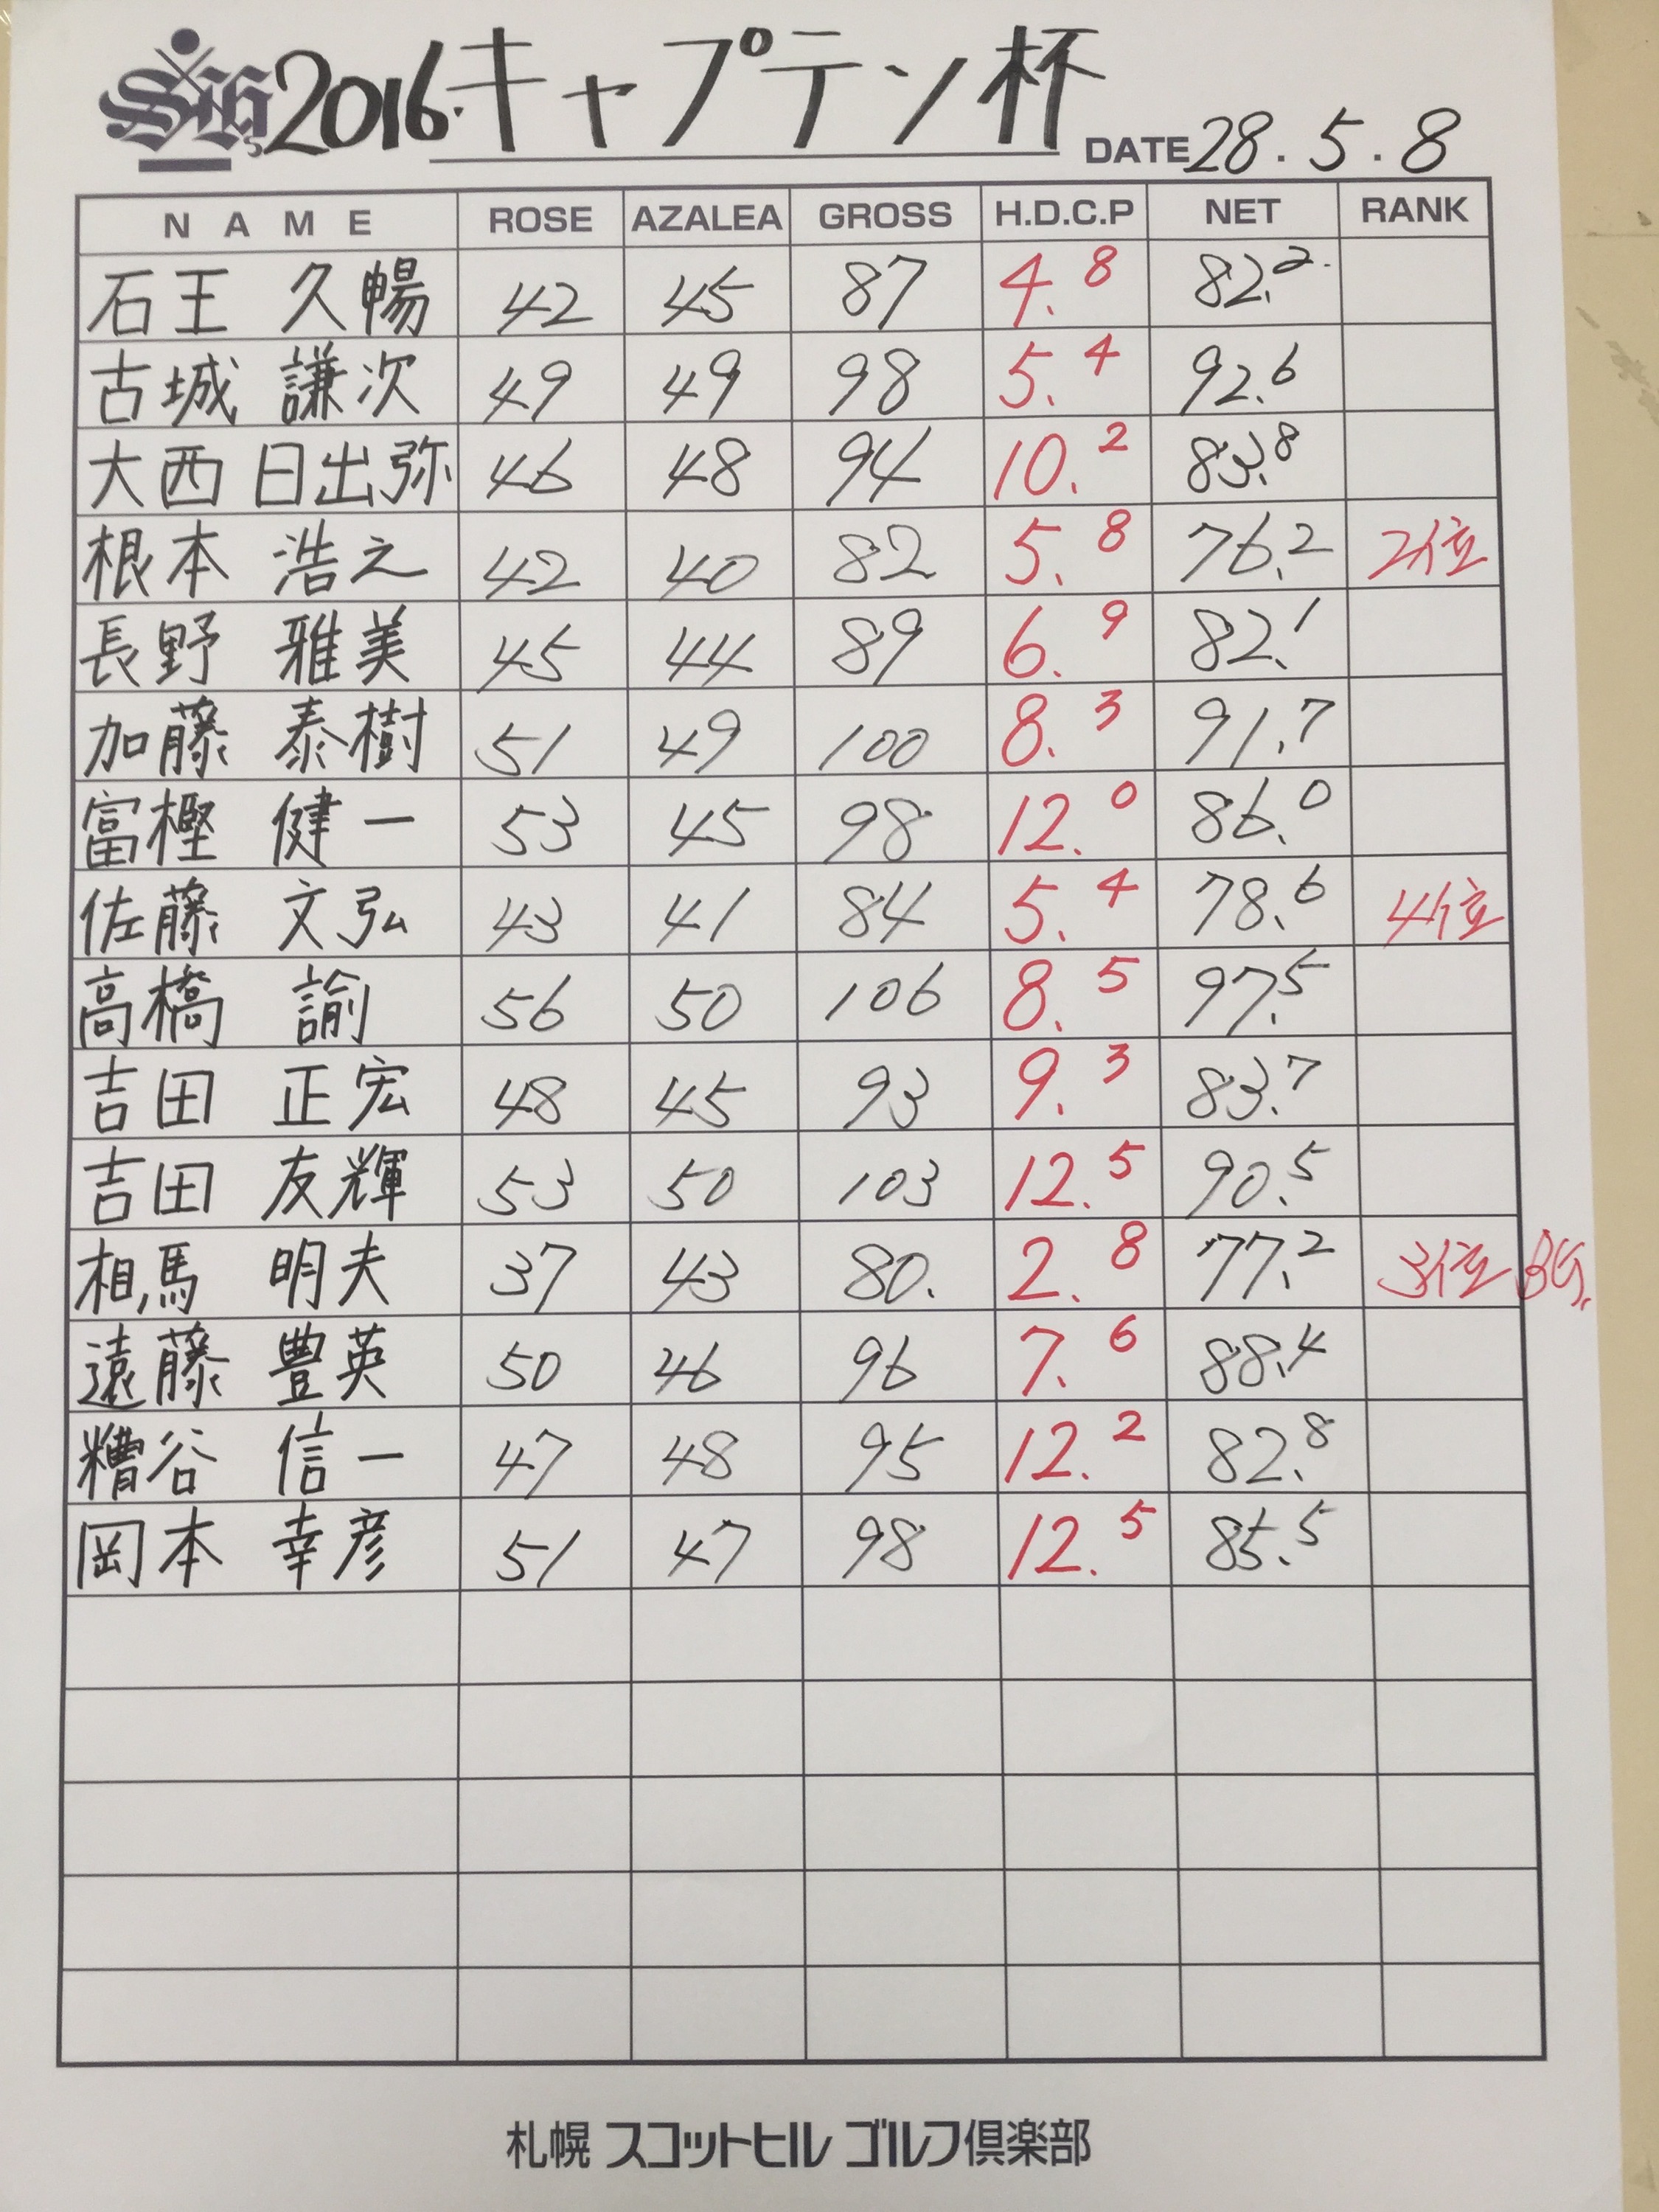 SHG 2016.キャプテン杯
DATE 28.5.8
NAME ROSE AZALEA GROSS H.D.C.P NET RANK
石王 久暢 42 45 87 4.8 82.2
古城 謙次 49 49 98 5.4 92.6
大西 日出弥 46 48 94 10.2 83.8
根本 浩之 42 40 82 5.8 76.2 2位
長野 雅美 45 44 89 6.9 82.1
加藤 泰樹 51 49 100 8.3 91.7
富樫 健一 53 45 98 12.0 86.0
佐藤 文弘 43 41 84 5.4 78.6 4位
高橋 諭 56 50 106 8.5 97.5
吉田 正宏 48 45 93 9.3 83.7
吉田 友輝 53 50 103 12.5 90.5
相馬 明夫 37 43 80. 2.8 77.2 3位 BG.
遠藤 豊英 50 46 96 7.6 88.4
糟谷 信一 47 48 95 12.2 82.8
岡本 幸彦 51 47 98 12.5 85.5
札幌 スコットヒル ゴルフ倶楽部